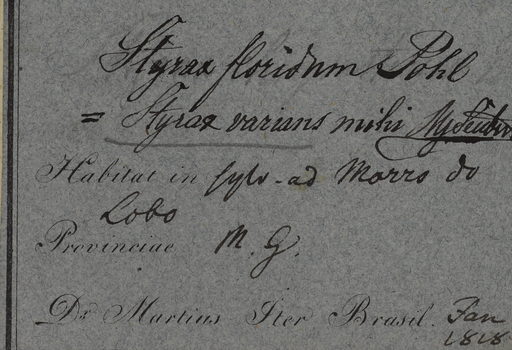 Styrax floridum Pohl
= Styrax varians mihi
Habitat in sylv. ad Morro do
Lobo
Provinciae M. G.
Dr Martius Iter Brasil. Jan
1818